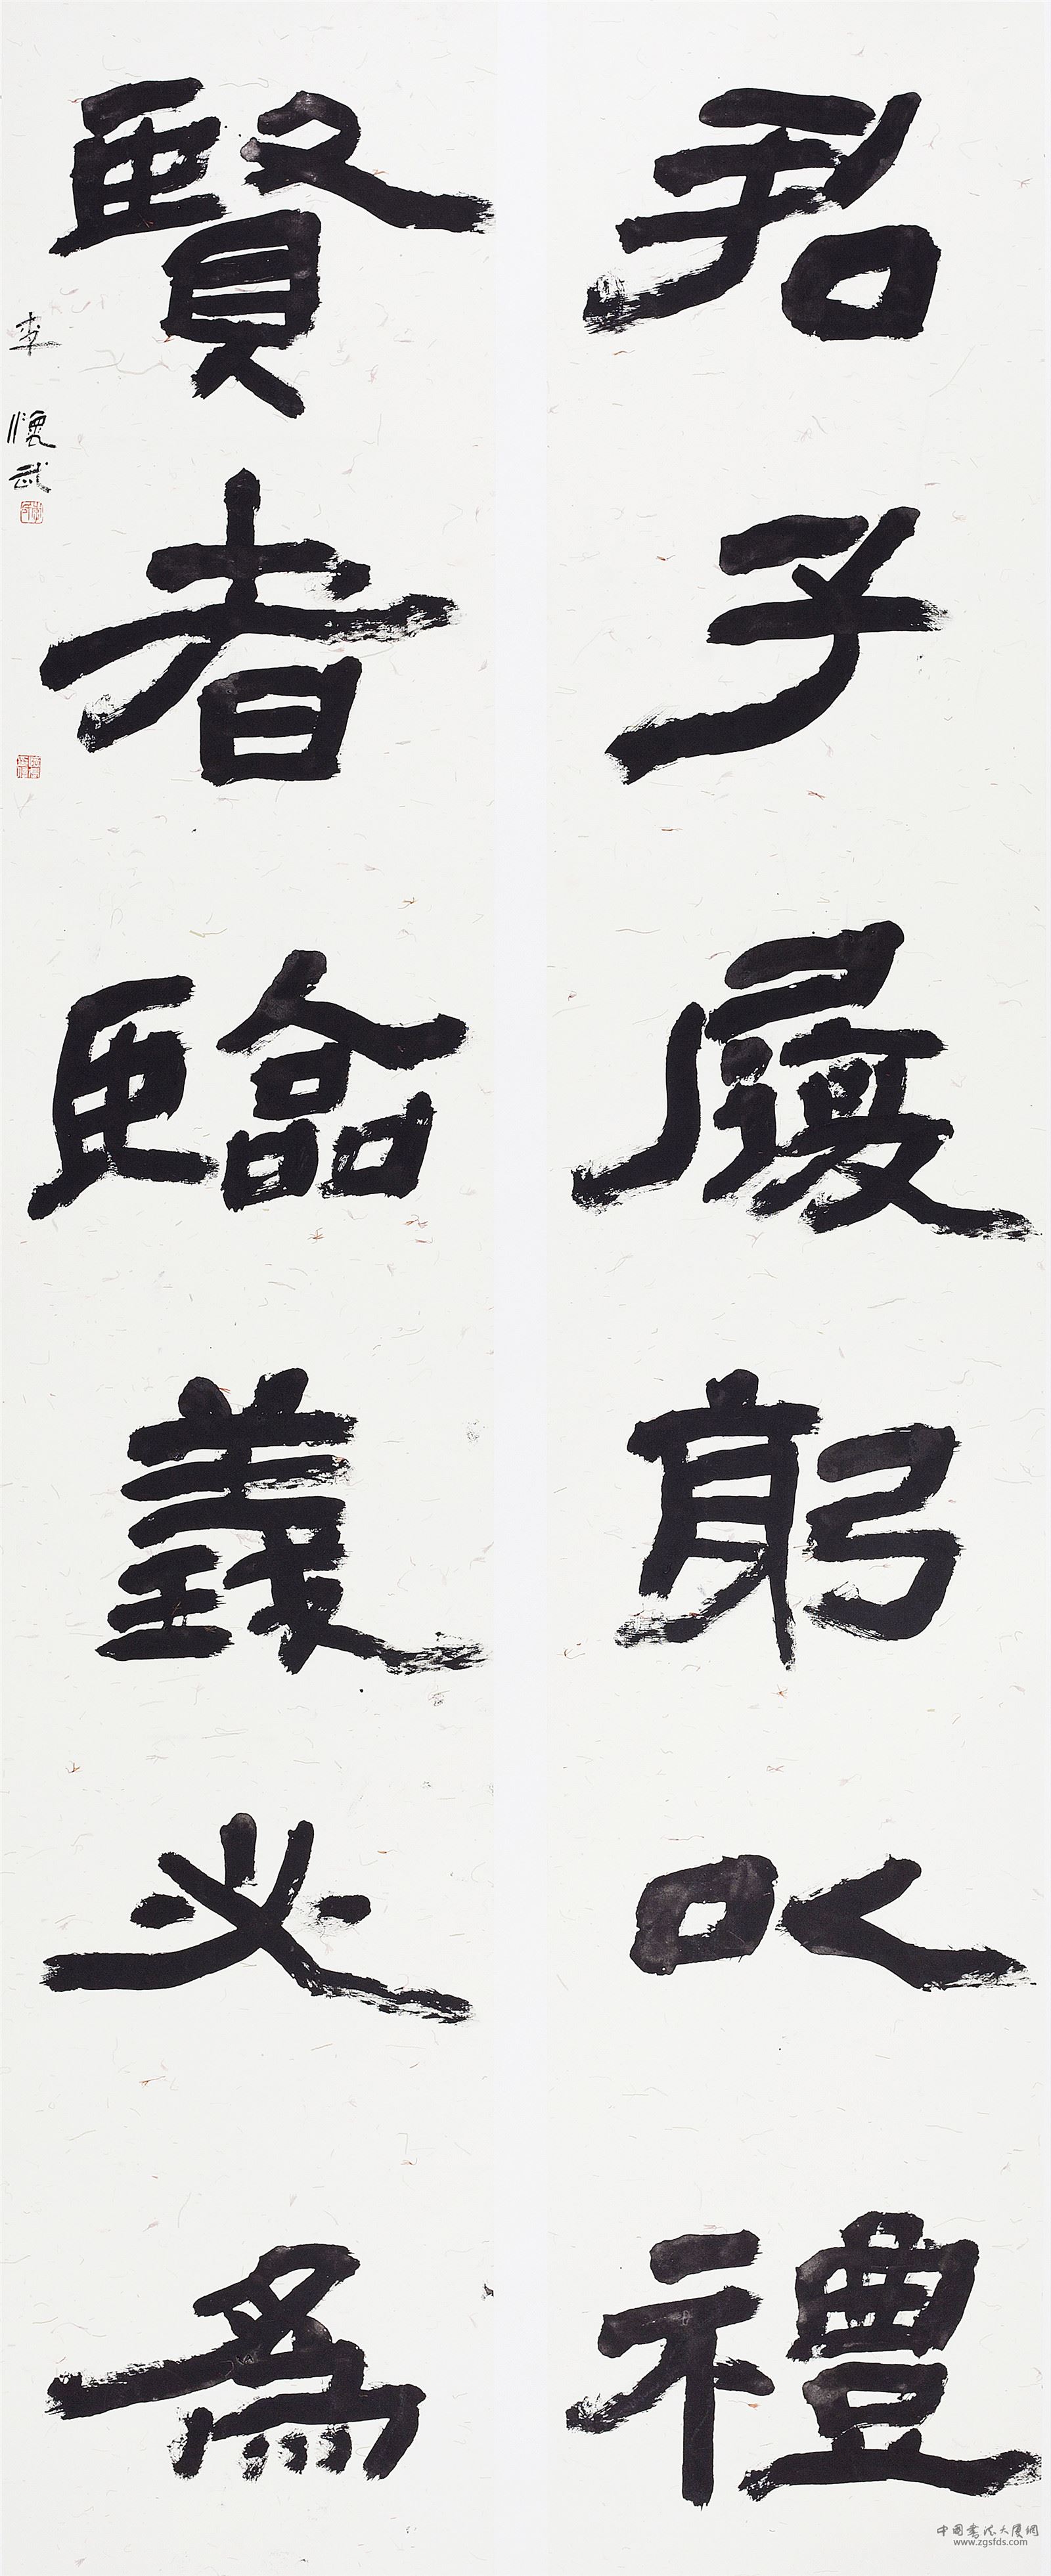 君子履躬以禮
賢者臨義必為
李懷武
中國書法大厦網
www.zgsfds.com